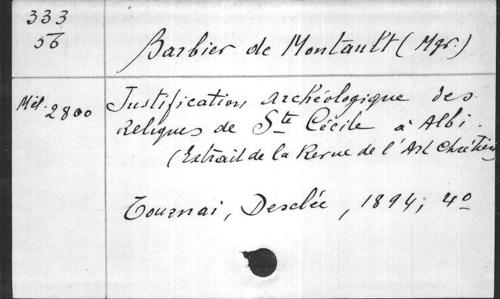 333
56
Barbier de Montault (Mgr.)
Mél. 2800
Justification archéologique des
reliques de Ste Cécile à Albi.
(Extrait de la Revue de l'Art Chrétien)
Tournai, Desclée, 1894; 4o